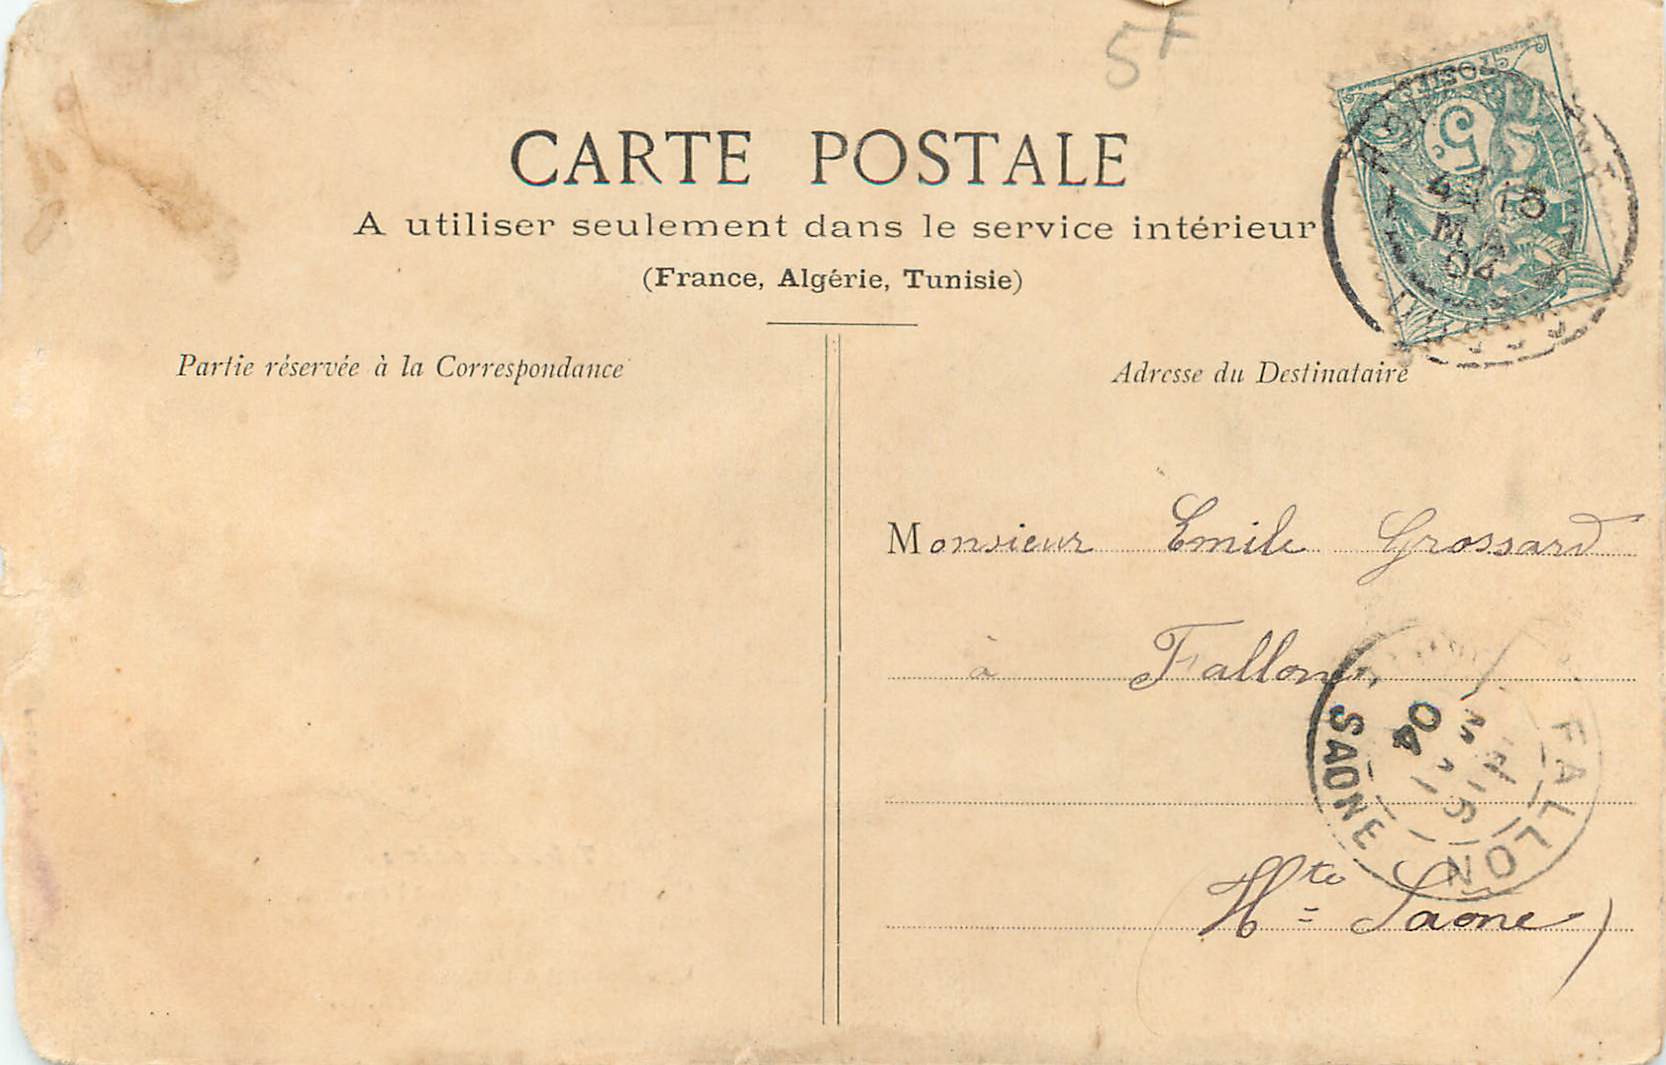 5F
CARTE POSTALE
A utiliser seulement dans le service intérieur
(France, Algérie, Tunisie)
POSTES
5
15
MA
04
Partie réservée à la Correspondance
Adresse du Destinataire
Monsieur Emile Grossard
à Fallon
FALLON
SAONE
04
Hte Saone)